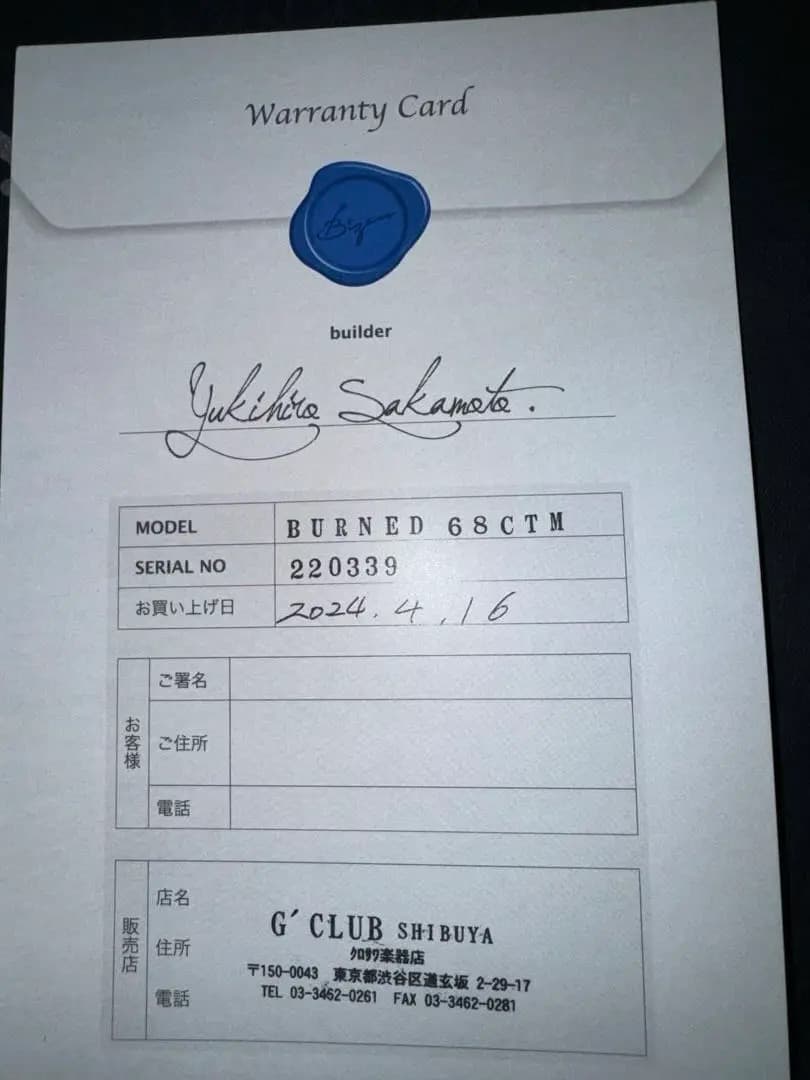 Warranty Card
Bizen
builder
Yukihiro Sakamoto.
MODEL BURNED 68CTM
SERIAL NO 220339
お買い上げ日 2024.4.16
お客様
ご署名
ご住所
電話
販売店
店名 G' CLUB SHIBUYA
クロサワ楽器店
住所 〒150-0043 東京都渋谷区道玄坂 2-29-17
電話 TEL 03-3462-0261 FAX 03-3462-0281